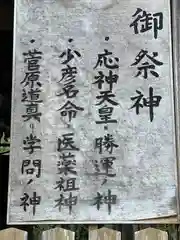 御祭神
・応神天皇・勝運ノ神
・少彦名命・医薬祖神
・菅原道真・学問ノ神